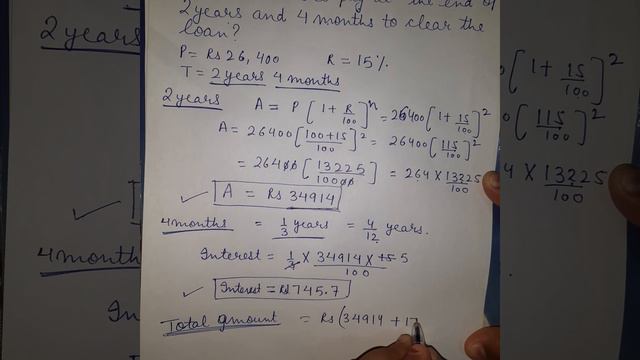 2 years and 4 months to clear the
loan?
P = Rs 26,400 R = 15%
T = 2 years 4 months
2 years A = P [1 + R/100]^n = 26400 [1 + 15/100]^2
A = 26400 [100+15/100]^2 = 26400 [115/100]^2
= 26400 [13225/10000] = 264 × 13225/100
A = Rs 34914
4 months = 1/3 years = 4/12 years.
Interest = 1/3 × 34914 × 15 5/100
Interest = Rs 1745.7
Total amount = Rs (34914 + 17
2 years
[1 + 15/100]^2
[115/100]^2
4 × 13225/100
4 months
In